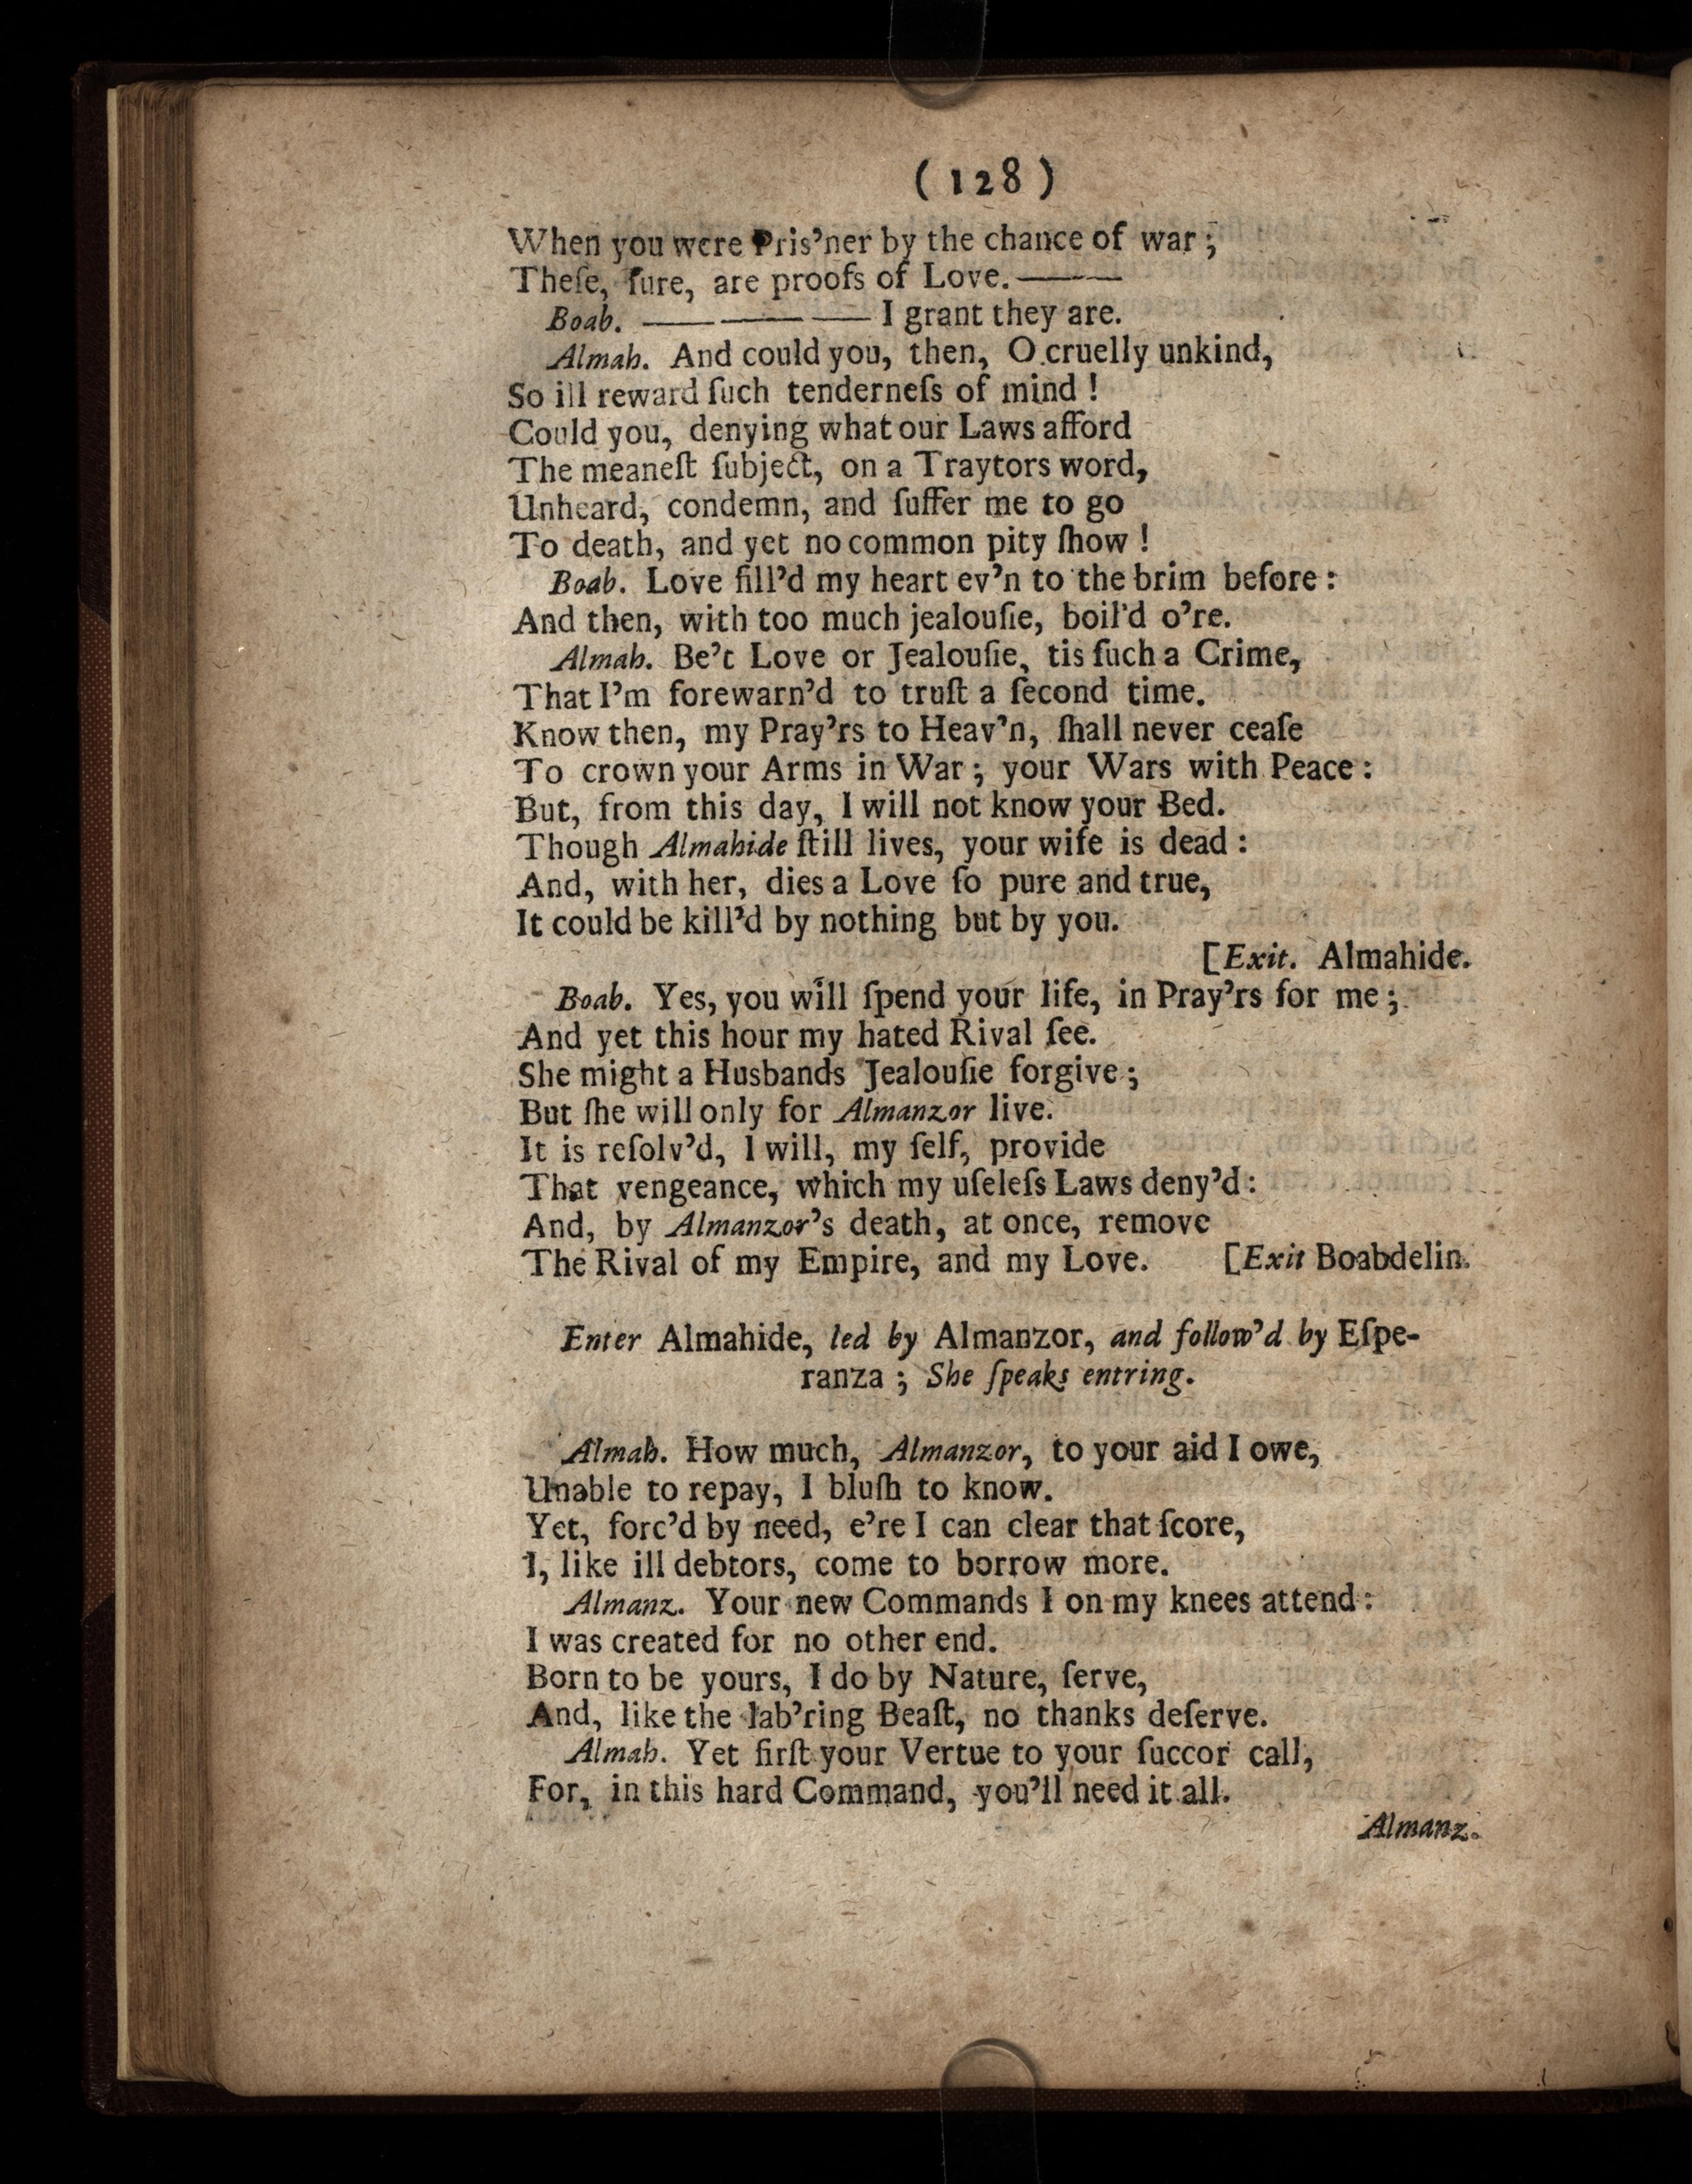 ( 128 )
When you were Pris’ner by the chance of war ;
Theſe, ſure, are proofs of Love. ———
Boab. ——— ——— ——— I grant they are.
Almah. And could you, then, O cruelly unkind,
So ill reward ſuch tenderneſs of mind !
Could you, denying what our Laws afford
The meaneſt ſubject, on a Traytors word,
Unheard, condemn, and ſuffer me to go
To death, and yet no common pity ſhow !
Boab. Love fill’d my heart ev’n to the brim before :
And then, with too much jealouſie, boil’d o’re.
Almah. Be’t Love or Jealouſie, tis ſuch a Crime,
That I’m forewarn’d to truſt a ſecond time.
Know then, my Pray’rs to Heav’n, ſhall never ceaſe
To crown your Arms in War ; your Wars with Peace :
But, from this day, I will not know your Bed.
Though Almahide ſtill lives, your wife is dead :
And, with her, dies a Love ſo pure and true,
It could be kill’d by nothing but by you.
[Exit. Almahide.
Boab. Yes, you will ſpend your life, in Pray’rs for me ;
And yet this hour my hated Rival ſee.
She might a Husbands Jealouſie forgive ;
But ſhe will only for Almanzor live.
It is reſolv’d, I will, my ſelf, provide
That vengeance, which my uſeleſs Laws deny’d :
And, by Almanzor’s death, at once, remove
The Rival of my Empire, and my Love. [Exit Boabdelin.
Enter Almahide, led by Almanzor, and follow’d by Eſpe-
ranza ; She ſpeaks entring.
Almah. How much, Almanzor, to your aid I owe,
Unable to repay, I bluſh to know.
Yet, forc’d by need, e’re I can clear that ſcore,
I, like ill debtors, come to borrow more.
Almanz. Your new Commands I on my knees attend :
I was created for no other end.
Born to be yours, I do by Nature, ſerve,
And, like the lab’ring Beaſt, no thanks deſerve.
Almah. Yet firſt your Vertue to your ſuccor call,
For, in this hard Command, you’ll need it all.
Almanz.